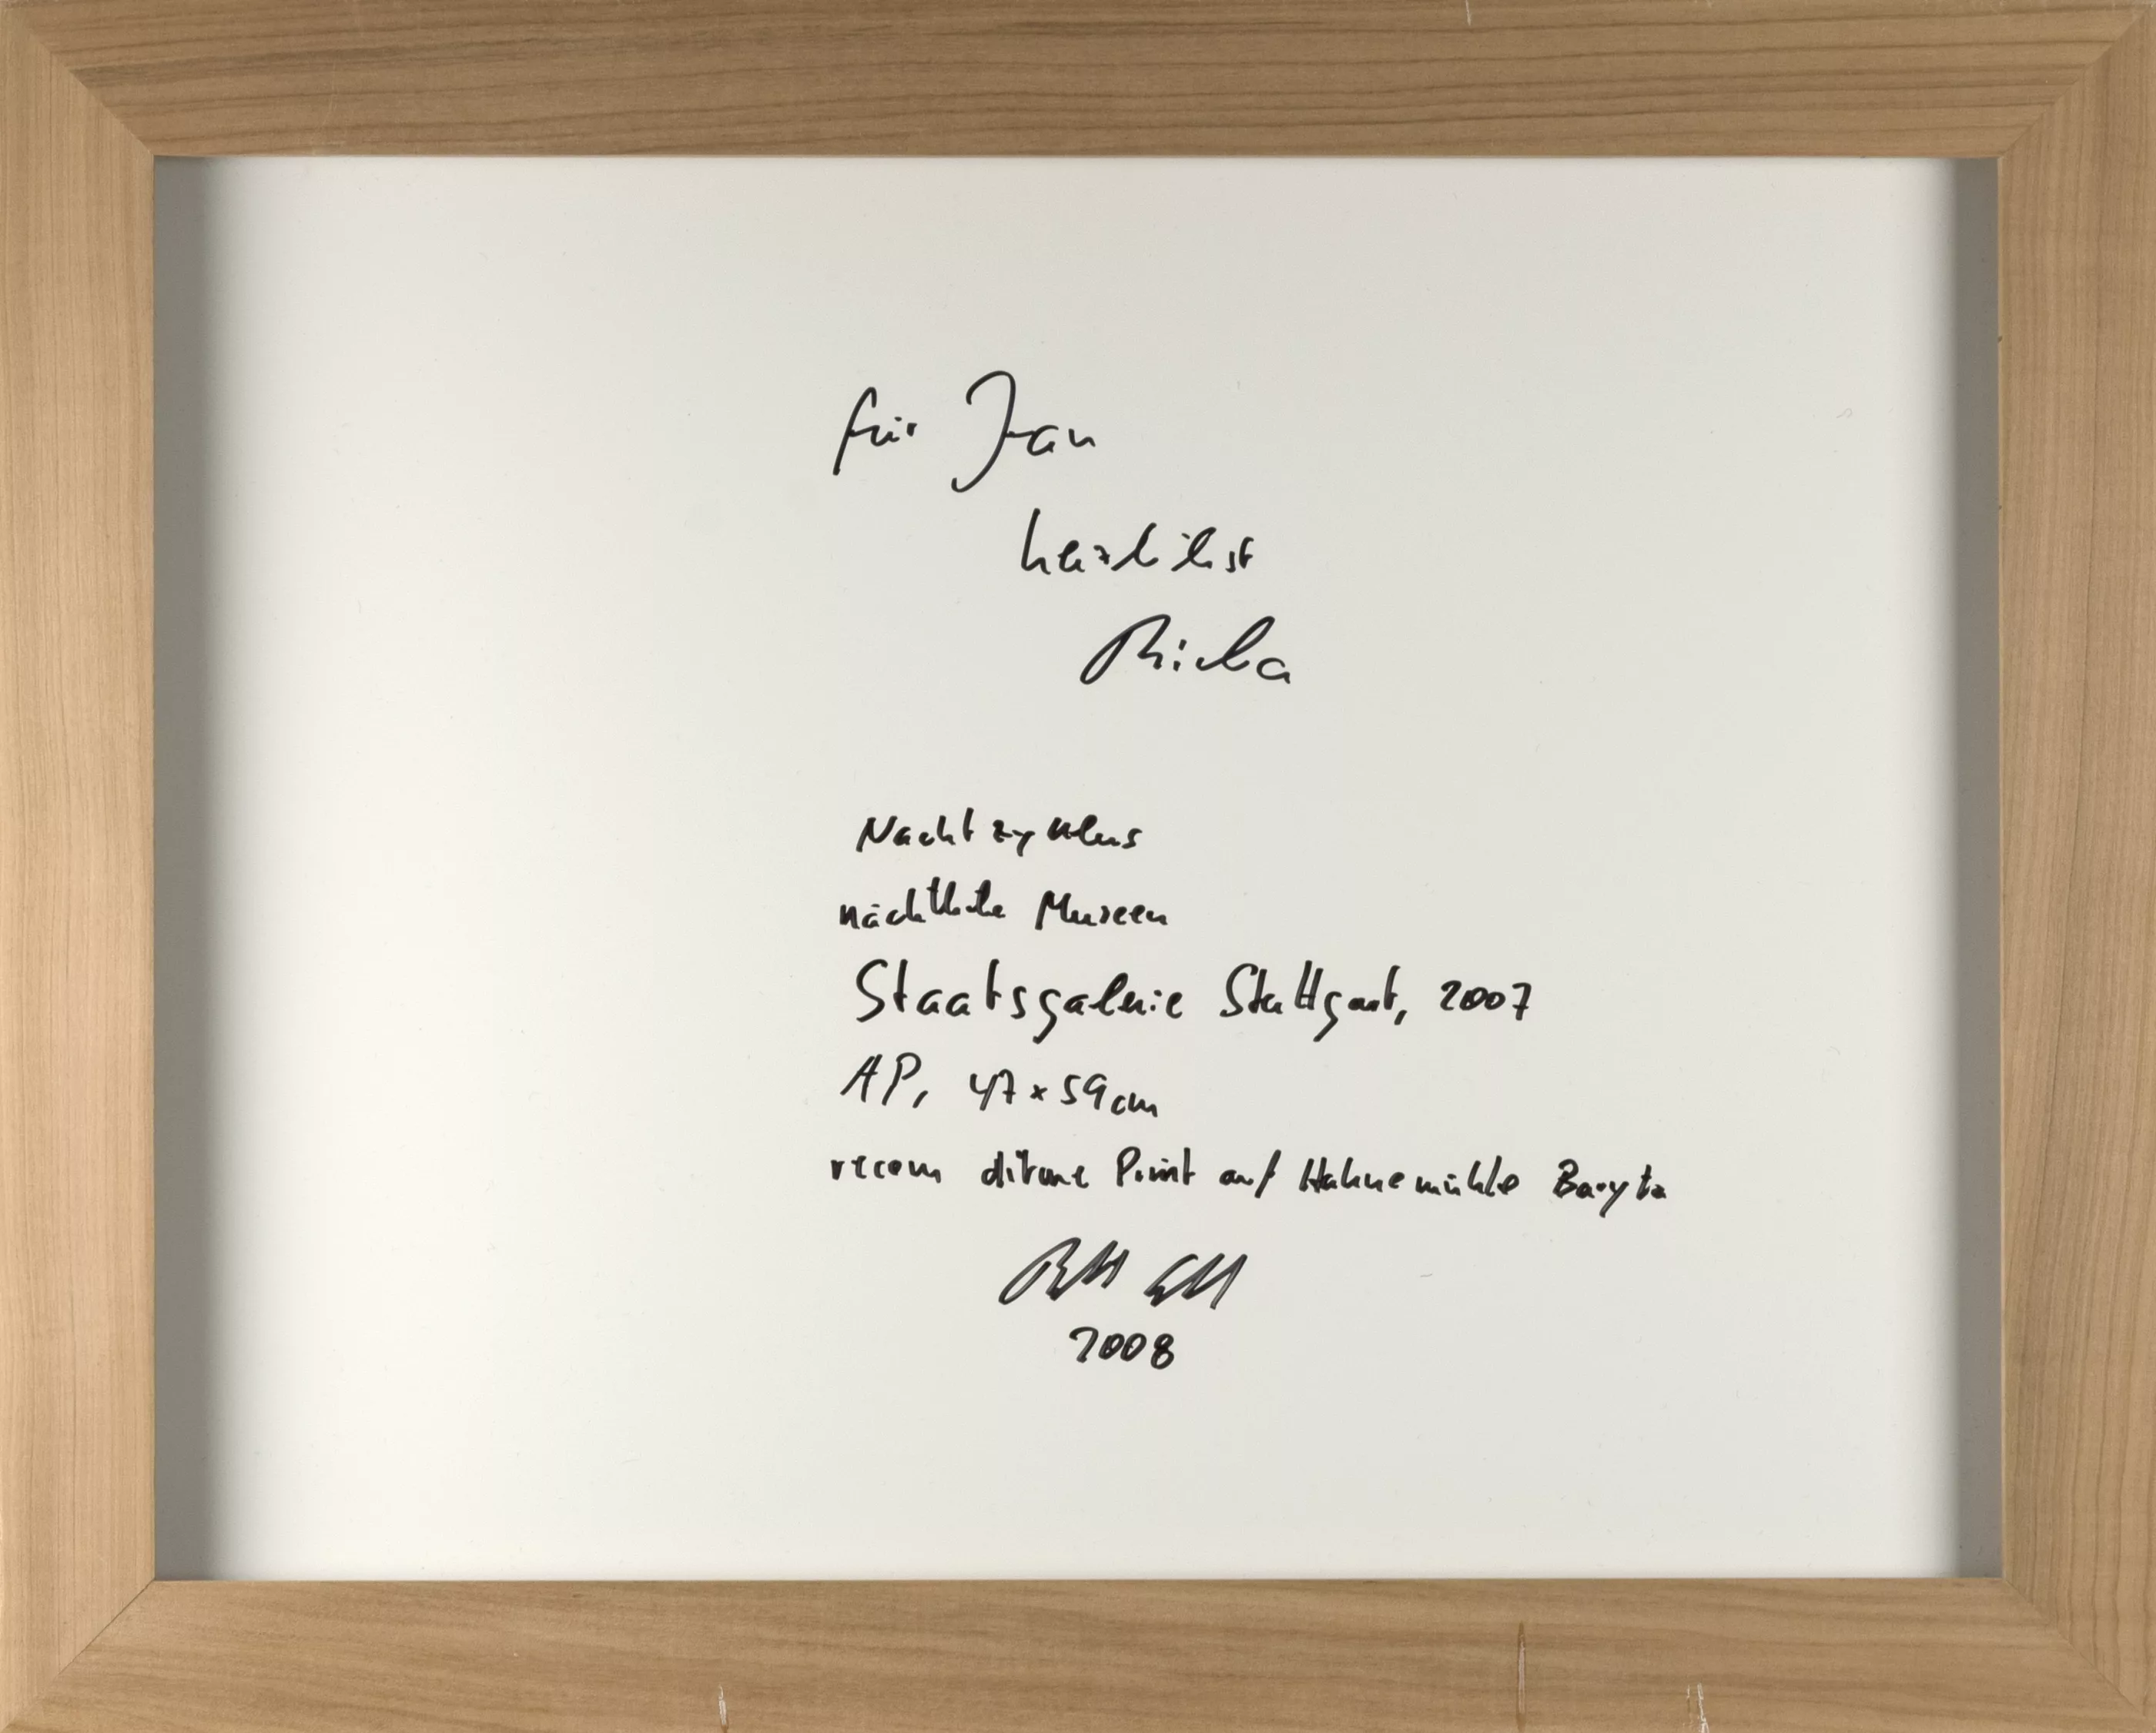 für Jan
herzlichst
Nachtzyklus
nächtliche Museen
Staatsgalerie Stuttgart, 2007
AP, 47 x 59 cm
recom ditone Print auf Hahnemühle Baryta
2008